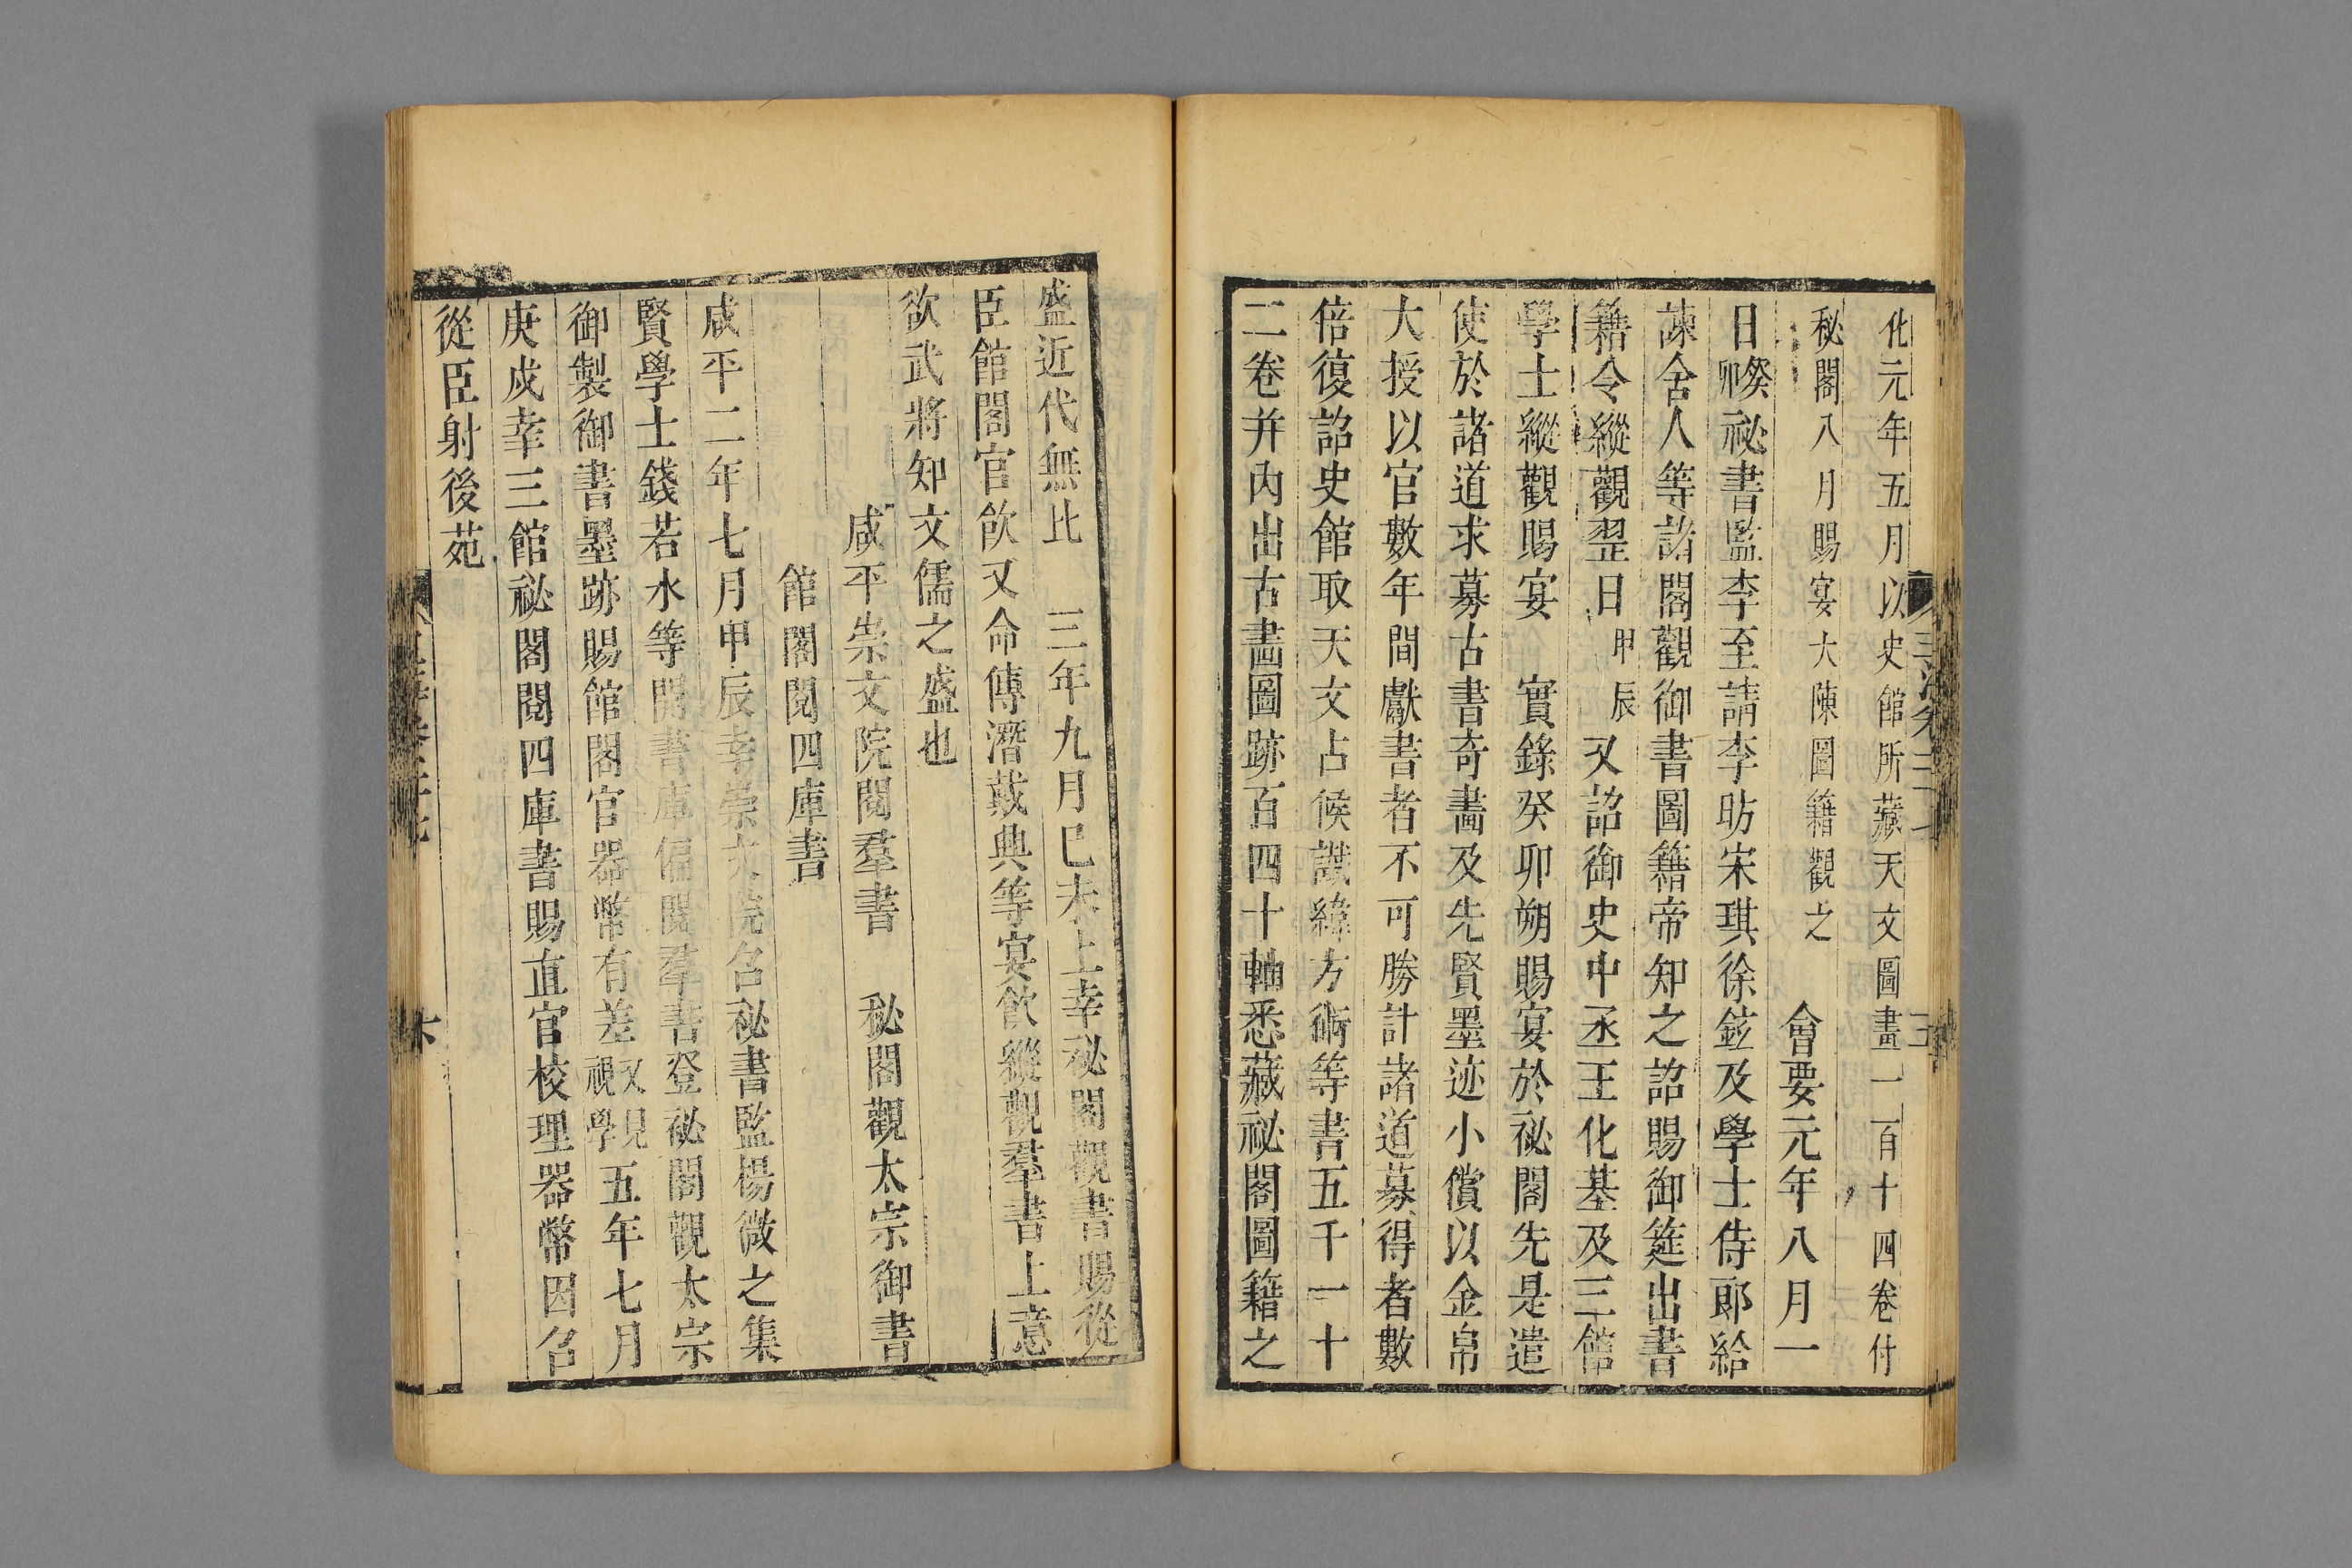 化元年五月以史館所藏天文圖畫一百十四卷付
秘閣八月賜宴大陳圖籍觀之 會要元年八月一
日癸卯祕書監李至請李昉宋琪徐鉉及學士侍郎給
諫舍人等諸閣觀御書圖籍帝知之詔賜御筵出書
籍令縱觀翌日甲辰又詔御史中丞王化基及三館
學士縱觀賜宴 實錄癸卯朔賜宴於祕閣先是遣
使於諸道求募古書奇畵及先賢墨迹小償以金帛
大授以官數年間獻書者不可勝計諸道募得者數
倍復詔史館取天文占候讖緯方術等書五千一十
二卷并內出古畵圖跡百四十軸悉藏祕閣圖籍之
盛近代無比 三年九月巳未上幸祕閣觀書賜從
臣館閣官飲又命傅潛戴興等宴飲縱觀羣書上意
欲武將知文儒之盛也
咸平崇文院閱羣書 秘閣觀太宗御書
館閣閱四庫書
咸平二年七月甲辰幸崇文院召祕書監楊徽之集
賢學士錢若水等開書庫徧閱羣書登祕閣觀太宗
御製御書墨跡賜館閣官器幣有差又見視學五年七月
庚戌幸三館祕閣閱四庫書賜直官校理器幣因召
從臣射後苑